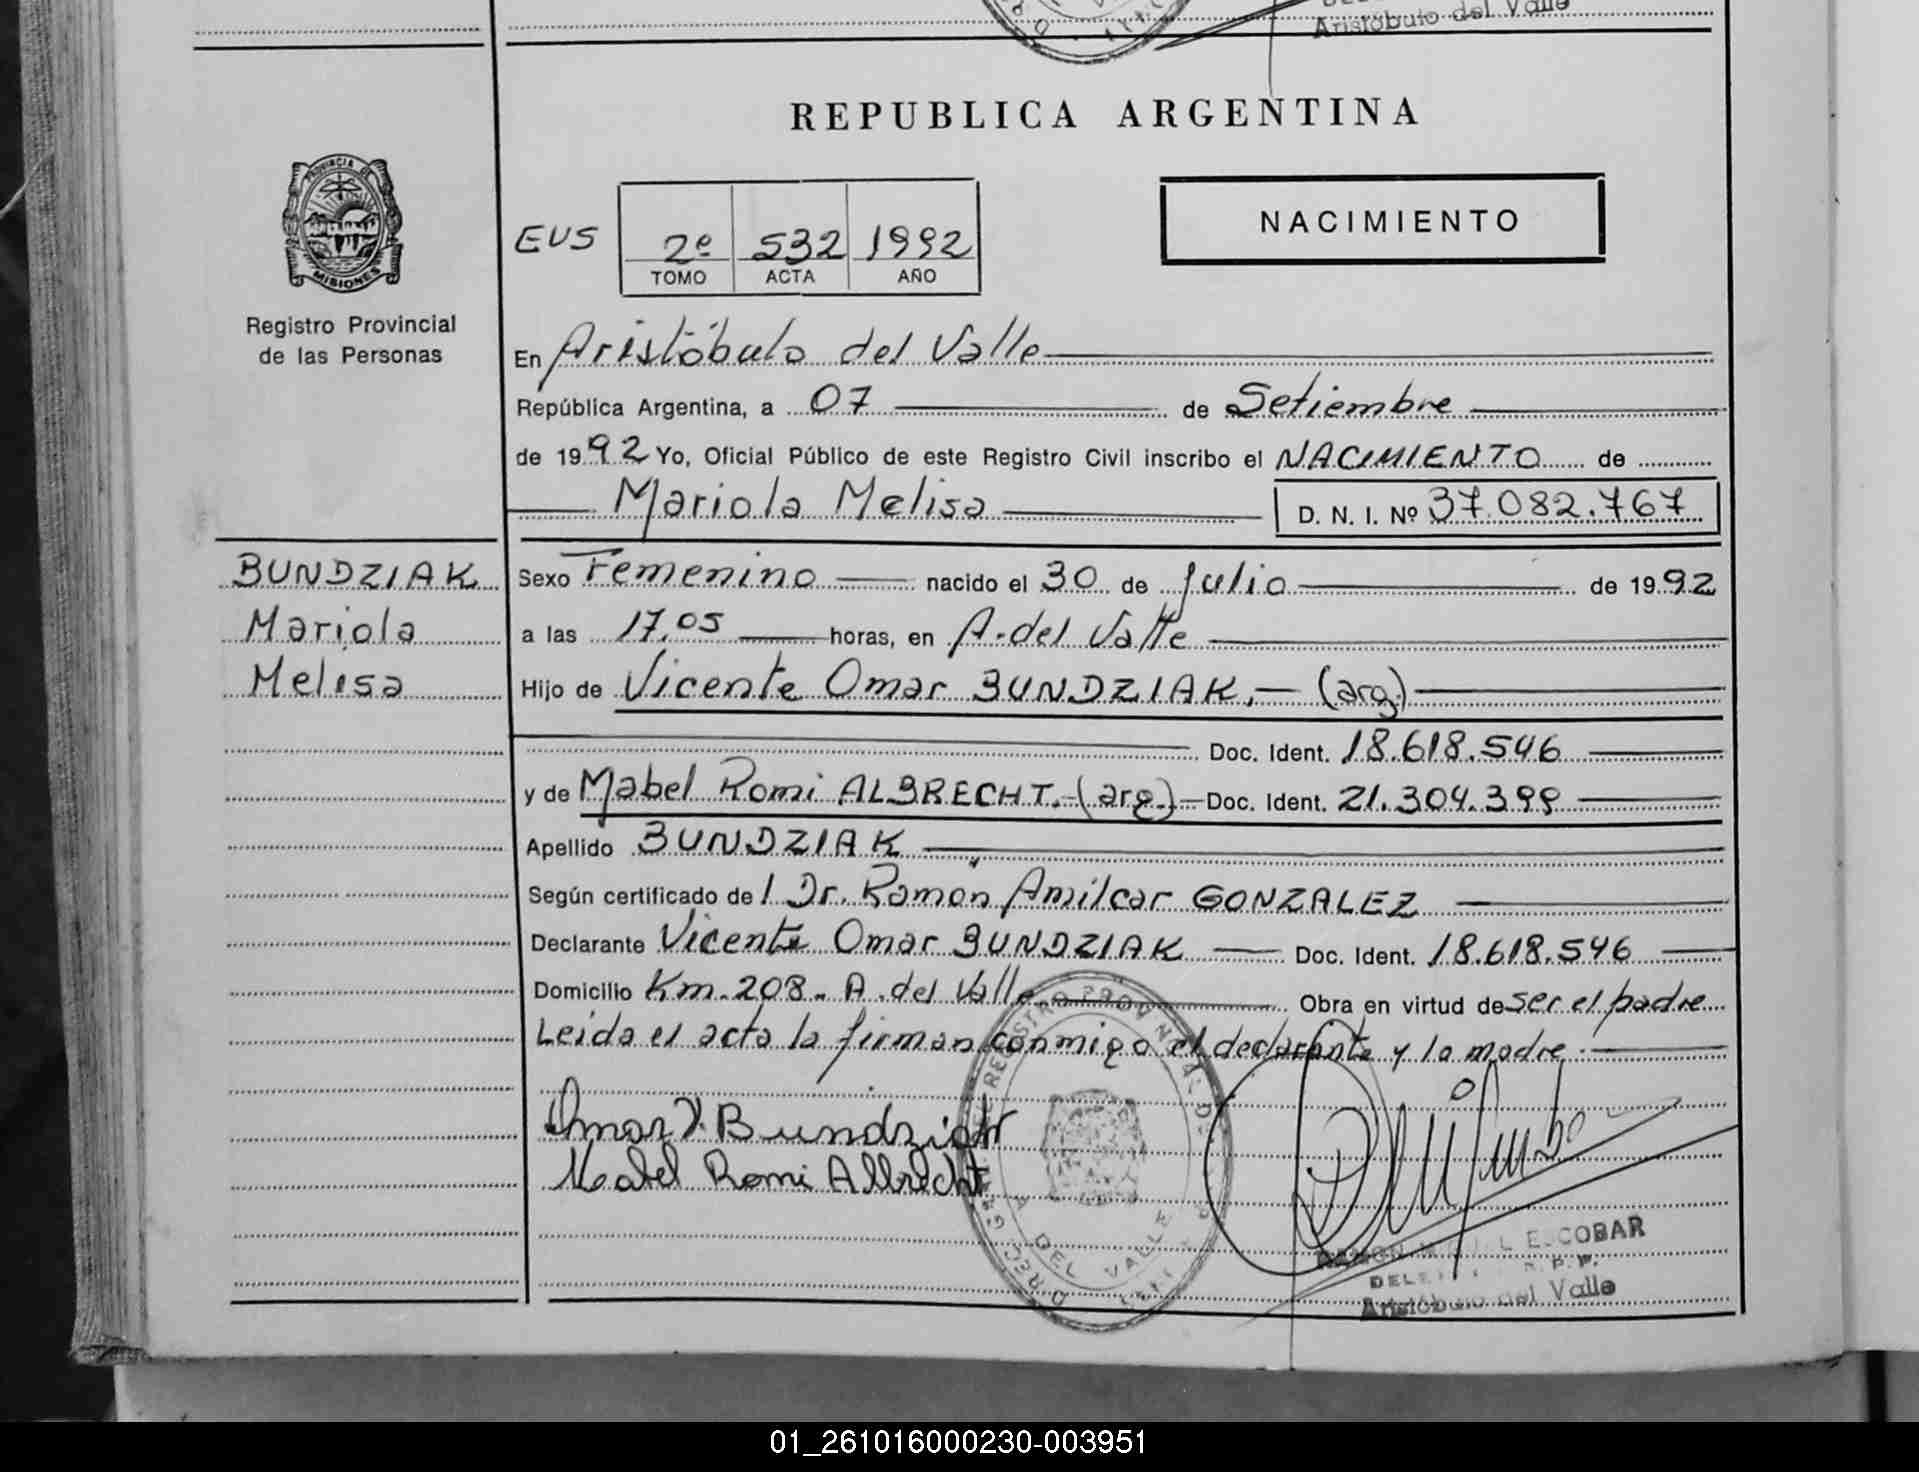 Aristóbulo del Valle
REPUBLICA ARGENTINA
PROVINCIA DE
MISIONES
Registro Provincial
de las Personas
EUS
2º 532 1992
TOMO ACTA AÑO
NACIMIENTO
En Aristóbulo del Valle
República Argentina, a 07 de Setiembre
de 1992 Yo, Oficial Público de este Registro Civil inscribo el NACIMIENTO de
Mariola Melisa D. N. I. Nº 37.082.767
BUNDZIAK
Mariola
Melisa
Sexo Femenino nacido el 30 de Julio de 1992
a las 17,05 horas, en A. del Valle
Hijo de Vicente Omar BUNDZIAK.- (arg.)
Doc. Ident. 18.618.546
y de Mabel Romi ALBRECHT.-(arg.)- Doc. Ident. 21.304.399
Apellido BUNDZIAK
Según certificado de l Dr. Ramón Amilcar GONZALEZ
Declarante Vicente Omar BUNDZIAK Doc. Ident. 18.618.546
Domicilio Km. 208.- A. del Valle Obra en virtud de ser el padre
Leida el acta la firman conmigo el declarante y la madre.-
Omar V. Bundziak
Mabel Romi Albrecht
A DEL VALLE
ESCOBAR
Aristóbulo del Valle
01_261016000230-003951